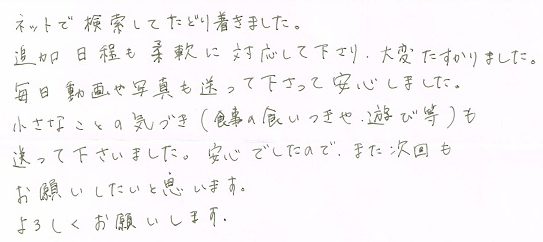 ネットで検索してたどり着きました。
追加日程も柔軟に対応して下さり、大変たすかりました。
毎日動画や写真も送って下さって安心しました。
小さなことの気づき(食事の食いつきや、遊び等)も
送って下さいました。安心でしたので、また次回も
お願いしたいと思います。
よろしくお願いします。